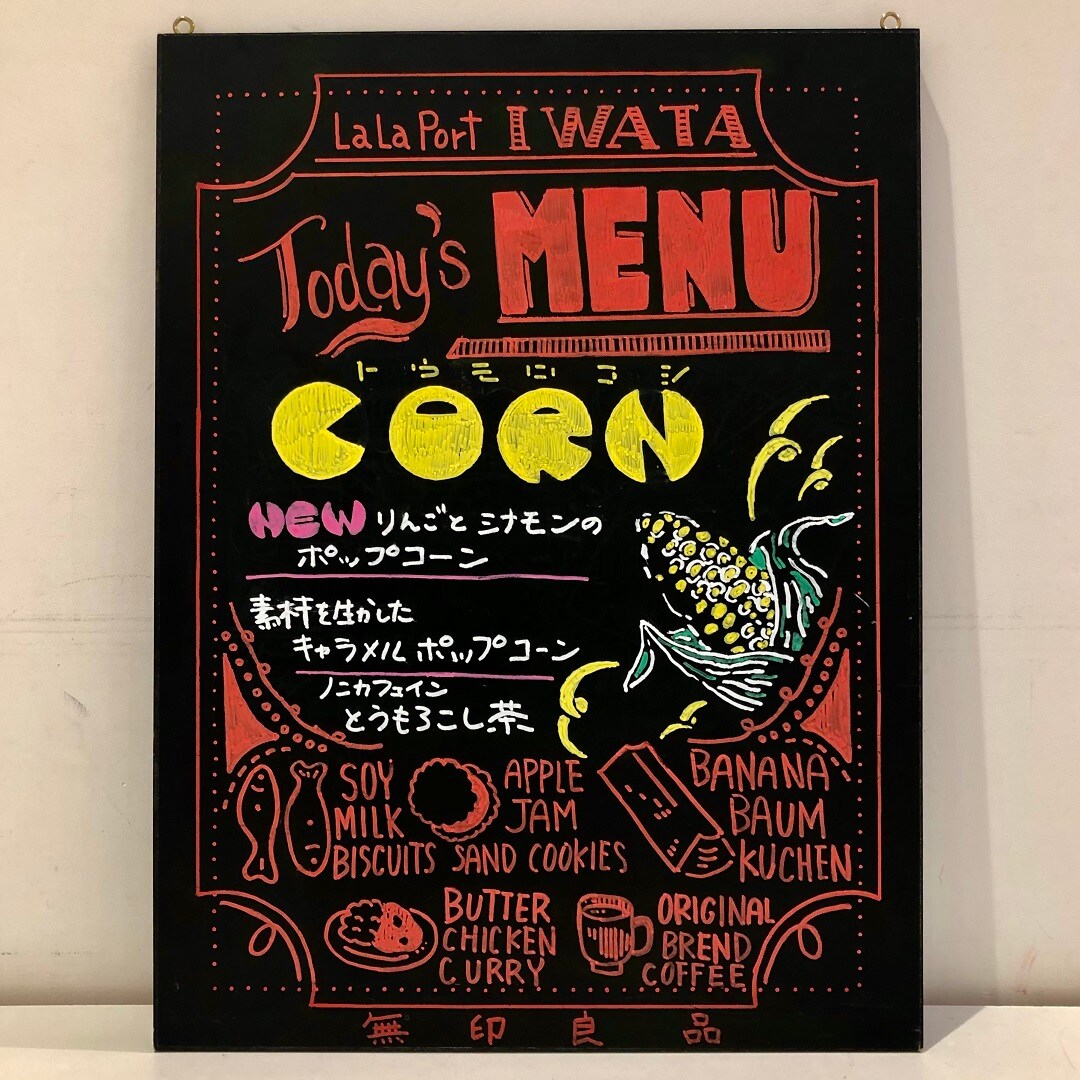 LaLaPort IWATA
Today's MENU
トウモロコシ
CORN
NEW りんごとシナモンの
ポップコーン
素材を生かした
キャラメルポップコーン
ノンカフェイン
とうもろこし茶
SOY
MILK
BISCUITS
APPLE
JAM
SAND COOKIES
BANANA
BAUM
KUCHEN
BUTTER
CHICKEN
CURRY
ORIGINAL
BREND
COFFEE
無印良品